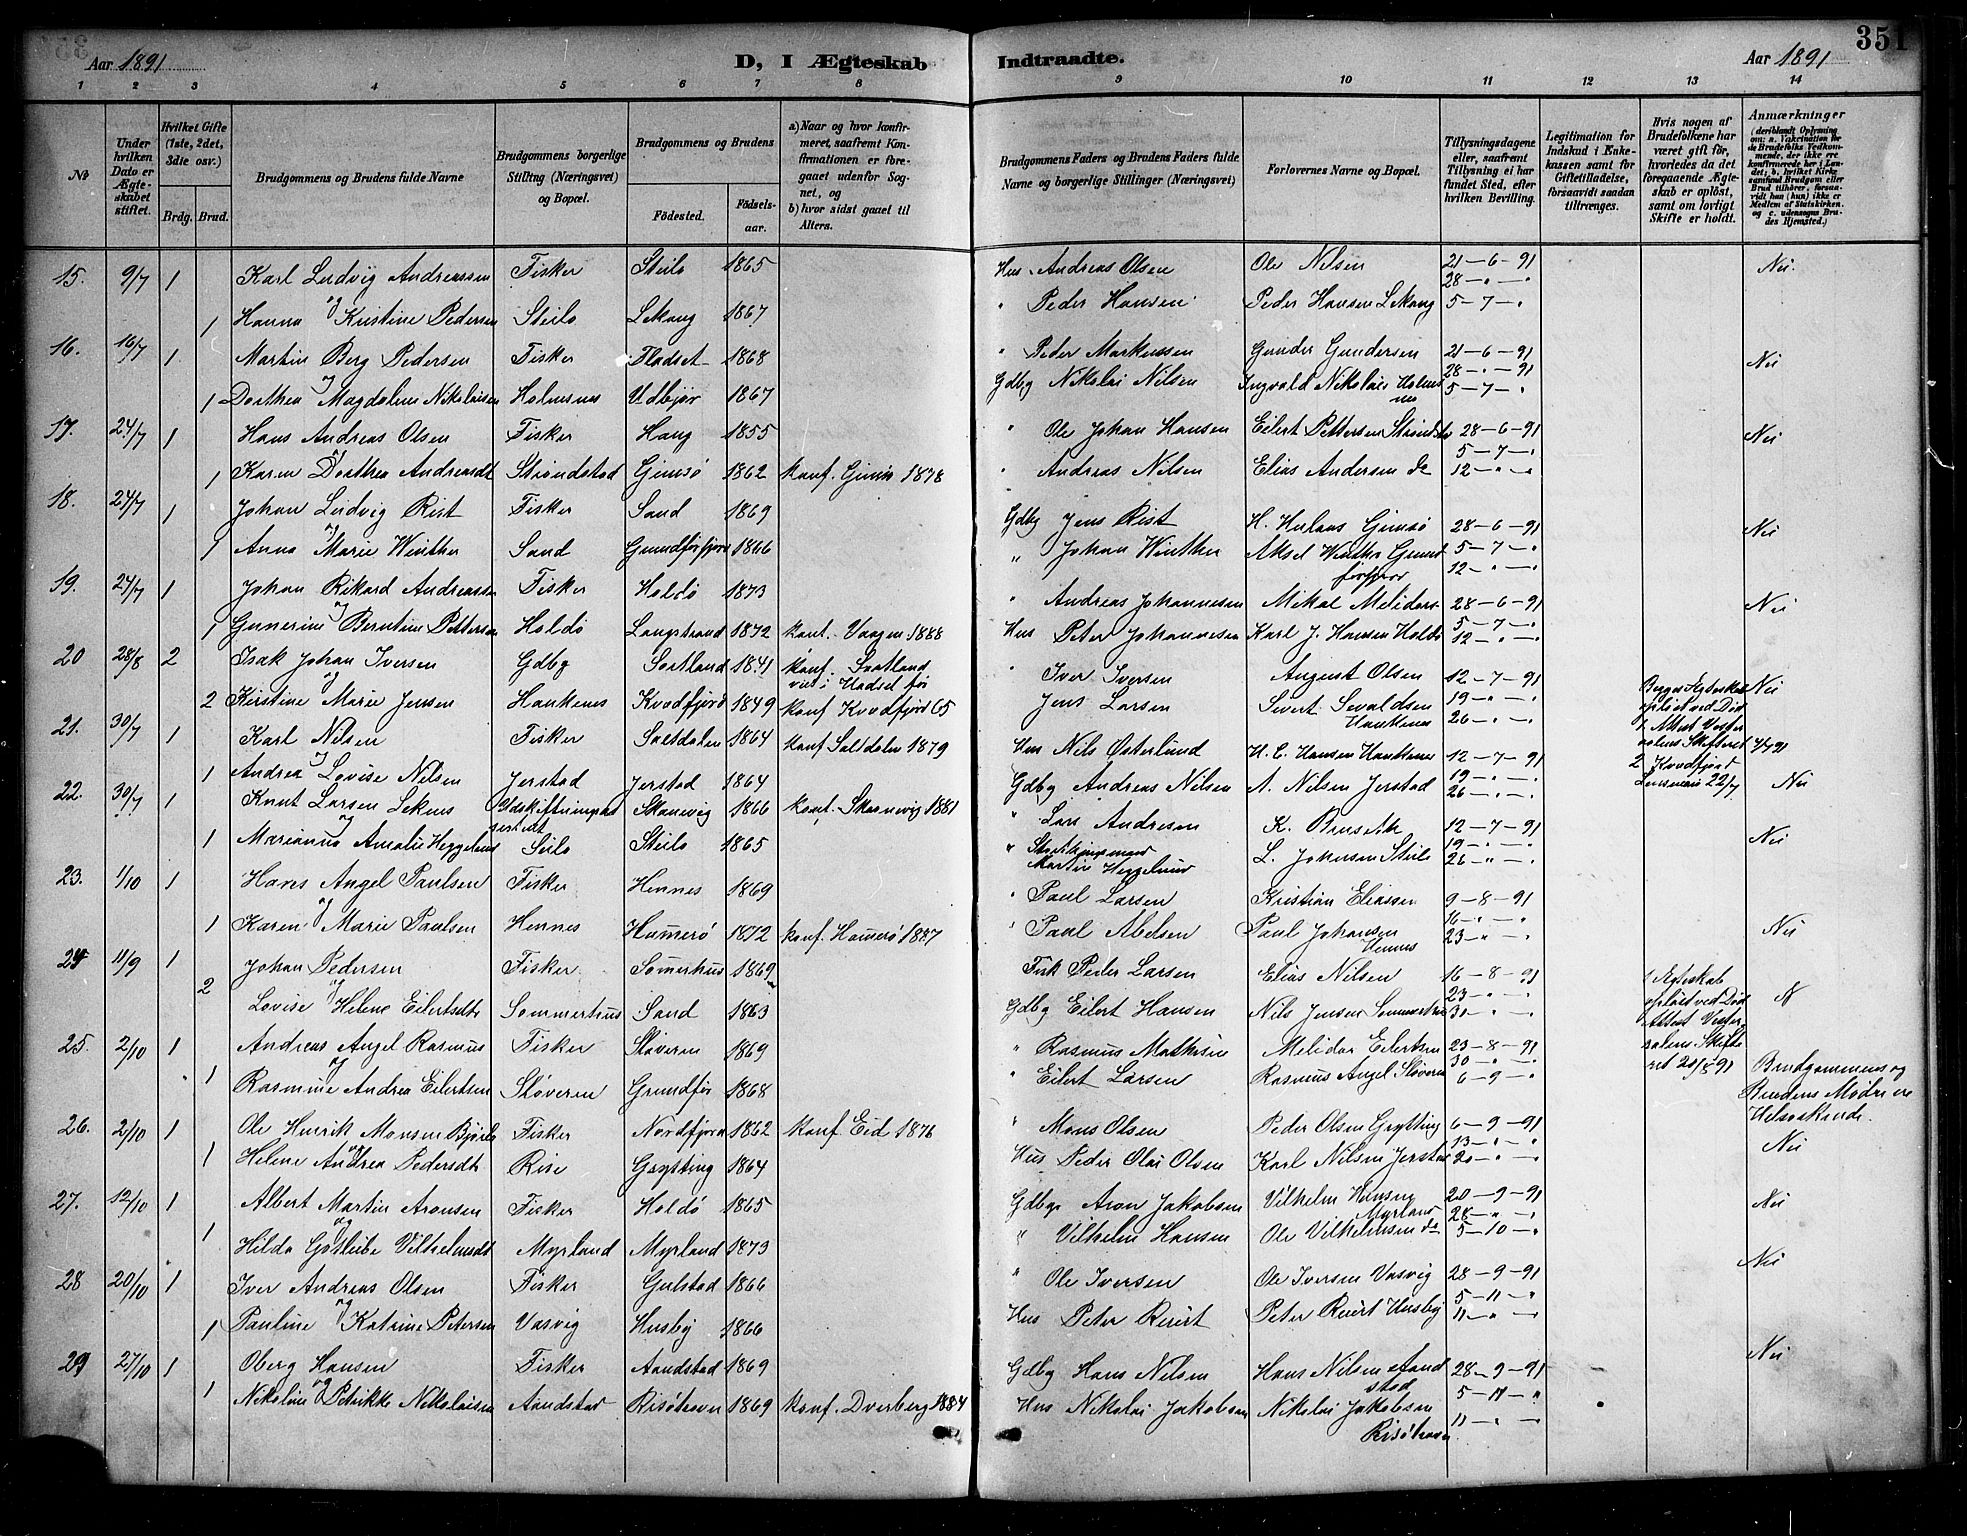 Aar 1891
D, I Ægteskab Indtraadte.
Aar 1891
351
1 2 3 4 5 6 7 8 9 10 11 12 13 14
No
Under hvilken Dato er Ægteskabet stiftet.
Hvilket Gifte (1ste, 2det, 3die osv.)
Brdg. Brud.
Brudgommens og Brudens fulde Navne
Brudgommens borgerlige Stilling (Næringsvei) og Bopæl.
Brudgommens og Brudens
Fødested.
Fødselsaar.
a) Naar og hvor konfirmeret, saafremt Konfirmationen er foregaaet udenfor Sognet, og
b) hvor sidst gaaet til Alters.
Brudgommens Faders og Brudens Faders fulde Navne og borgerlige Stillinger (Næringsvei)
Forlovernes Navne og Bopæl.
Tillysningsdagene eller, saafremt Tillysning ei har fundet Sted, efter hvilken Bevilling.
Legitimation for Indskud i Ænkekassen samt for Giftetilladelse, forsaavidt saadan tiltrænges.
Hvis nogen af Brudefolkene har været gift før, hvorledes da det foregaaende Ægteskab er opløst, samt om lovligt Skifte er holdt.
Anmærkninger
15. 9/7 1 Karl Ludvig Andreassen Fisker Steilo 1865 Hus. Andreas Olsen Ole Nilsen 21-6-91 Nei.
28-"-"
og
1 Hanna Kristine Pedersen Steilo Lekang 1867 " Peder Hansen Peder Hansen Lekang 5-7-"
16. 16/7 1 Martin Berg Pedersen Fisker Fladset 1868 " Peder Markussen Gunder Gundersen 21-6-91 Nei
28-"-91
og
1 Dorthea Magdalene Nikolaisen Holmsnes Udbjør 1867 Gdbg Nikolai Nilsen Ingvald Nikolais Holmsnes 5-7-"
17. 24/7 1 Hans Andreas Olsen Fisker Haug 1855 " Ole Johan Hansen Eilert Pettersen 28-6-91 Nei
5-7-"
1 Karen Dorthea Andreasdt Strøndstad Gimsø 1862 konf. Gimsø 1878 " Andreas Nilsen Elias Andersen do 12-"-"
18. 24/7 1 Johan Ludvig Rist Fisker Sand 1869 Gdbg Jens Rist H. Gimsø 28-6-91 Nei
og
1 Anna Marie Winther Sand Grundførfjord 1866 " Johan Winther Aksel Winther Grundførfjord 5-7-"
12-"-"
19. 24/7 1 Johan Rikard Andreassen Fisker Holdø 1873 " Andreas Johannesen Mikal 28-6-91 Nei
og
1 Gunerine Berntine Pettersen Holdø Langstrand 1872 konf. Vaagen 1888 Hus Peter Johannesen Karl J. Hansen Holdø 5-7-"
12-"-"
20 28/8 2 Isak Johan Iversen Gdbg Sortland 1841 konf. Sortland " Iver Iversen August Olsen 12-7-91 Nei
viet i Hadsel før
og
2 Kirstine Marie Jensen Haukenes Kvædfjord 1849 konf Kvædfjord 65 Jens Larsen Sivert Sevaldsen Haukenes 19-"-"
26-"-"
Begges Ægteskab opløst ved Død
21. 30/7 1 Karl Nilsen Fisker Saltdalen 1864 konf Saltdalen 1879 Hus Nils Østerlund H. C. Hansen Haukenes 12-7-91
og
1 Andrea Lovise Nilsen Jerstad Jerstad 1864 Gdbg Andreas Nilsen A. Nilsen Jerstad 19-"-"
26-"-" Nei
22. 30/7 1 Knut Larsen Lekness Udskiftningsassistent Skaanevig 1866 konf. Skaanevig 1881 " Lars Andresen K. Bruseth 12-7-91 Nei
og
1 Marianna Amalie Heggelund Seilo Steilo 1865 " Martin Heggelund L. Johansen Steilo 19-"-"
26-"-"
23. 1/10 1 Hans Angel Paulsen Fisker Hennes 1869 " Paul Larsen Kristian Eliassen 9-8-91
og
1 Karen Marie Paulsen Hennes Hamerø 1872 konf. Hamerø 1887 " Paul Abelsen Paul Johansen Hennes 16-"-"
23-"-" Nei
24 11/9 1 Johan Pedersen Fisker Somerhus 1869 Fisk Peder Larsen Elias Nilsen 16-8-91
og
2 Lovise Helene Eilertsdt Sommerhus Sand 1863 Gdbg Eilert Hansen Nils Jensen Sommerhus 23-"-"
30-"-"
1 Ægteskab opløst ved Død
25. 2/10 1 Andreas Angel Rasmus Fisker Støveren 1869 " Rasmus Mathisen Melidor Eilertsen 23-8-91
og
1 Rasmine Andrea Eilertsen Støveren Grundfør 1868 " Eilert Larsen Rasmus Angel Støveren 30-"-"
6-9-"
Brudgommens og Brudens Mødre ere Helsøskende.
26. 2/10 1 Ole Henrik Monsen Fisker Nordfjord 1862 konf Eid 1876 " Mons Olsen Peder Olsen Grytting 6-9-91 Nei
og
1 Helene Andrea Pedersdt Rise Grytting 1864 Hus Peder Olai Olsen Karl Nilsen Jerstad 13-"-"
20-"-"
27. 12/10 1 Albert Martin Aronsen Fisker Holdø 1865 Gdbg Aron Jakobsen Vilhelm Hansen Myrland 20-9-91 Nei
og
1 Hilda Gotleibe Vilhelmsdt Myrland Myrland 1873 " Vilhelm Hansen Ole Vilhelmsen do 28-"-"
5-10-"
28 20/10 1 Iver Andreas Olsen Fisker Gulstad 1866 " Ole Iversen Ole Iversen Vasvig 28-9-91 Nei
og
1 Pauline Katrine Petersen Vasvig Husby 1866 Hus Peter Reiert Peter Reiert Husby 5-11-"
11-"-"
29 27/10 1 Oberg Hansen Fisker Aandstad 1869 Gdbg Hans Nilsen Hans Nilsen Aandstad 28-9-91 Nei
og
1 Nikoline Petrikke Nikolaisen Aandstad Risøhavn 1869 konf. Dverberg 1884 Hus Nikolai Jakobsen Nikolai Jakobsen Risøhavn 5-11-"
11-"-"